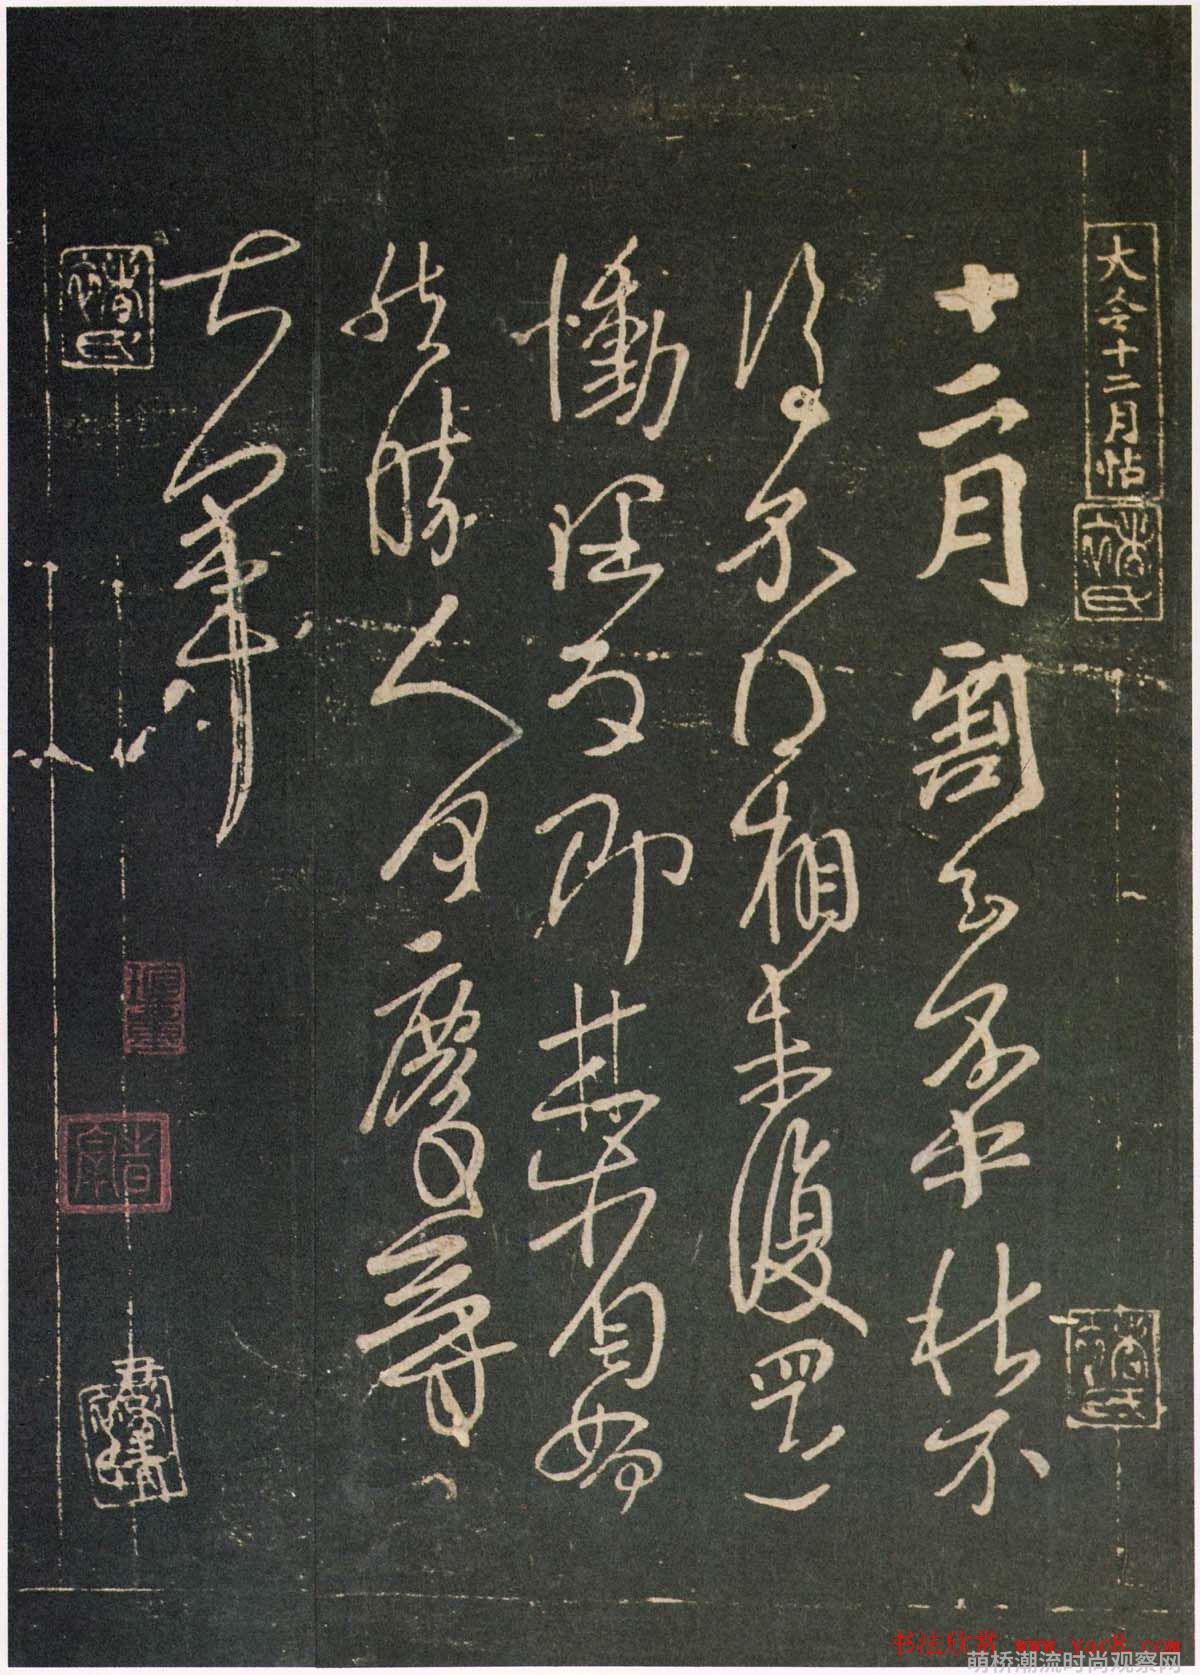 大令十二月帖
十二月割至不中秋不
復不得相未復還
慟理為即甚省如何
然勝人何慶等
大軍
书法欣赏 www.yac8.com
萌桥潮流时尚观察网